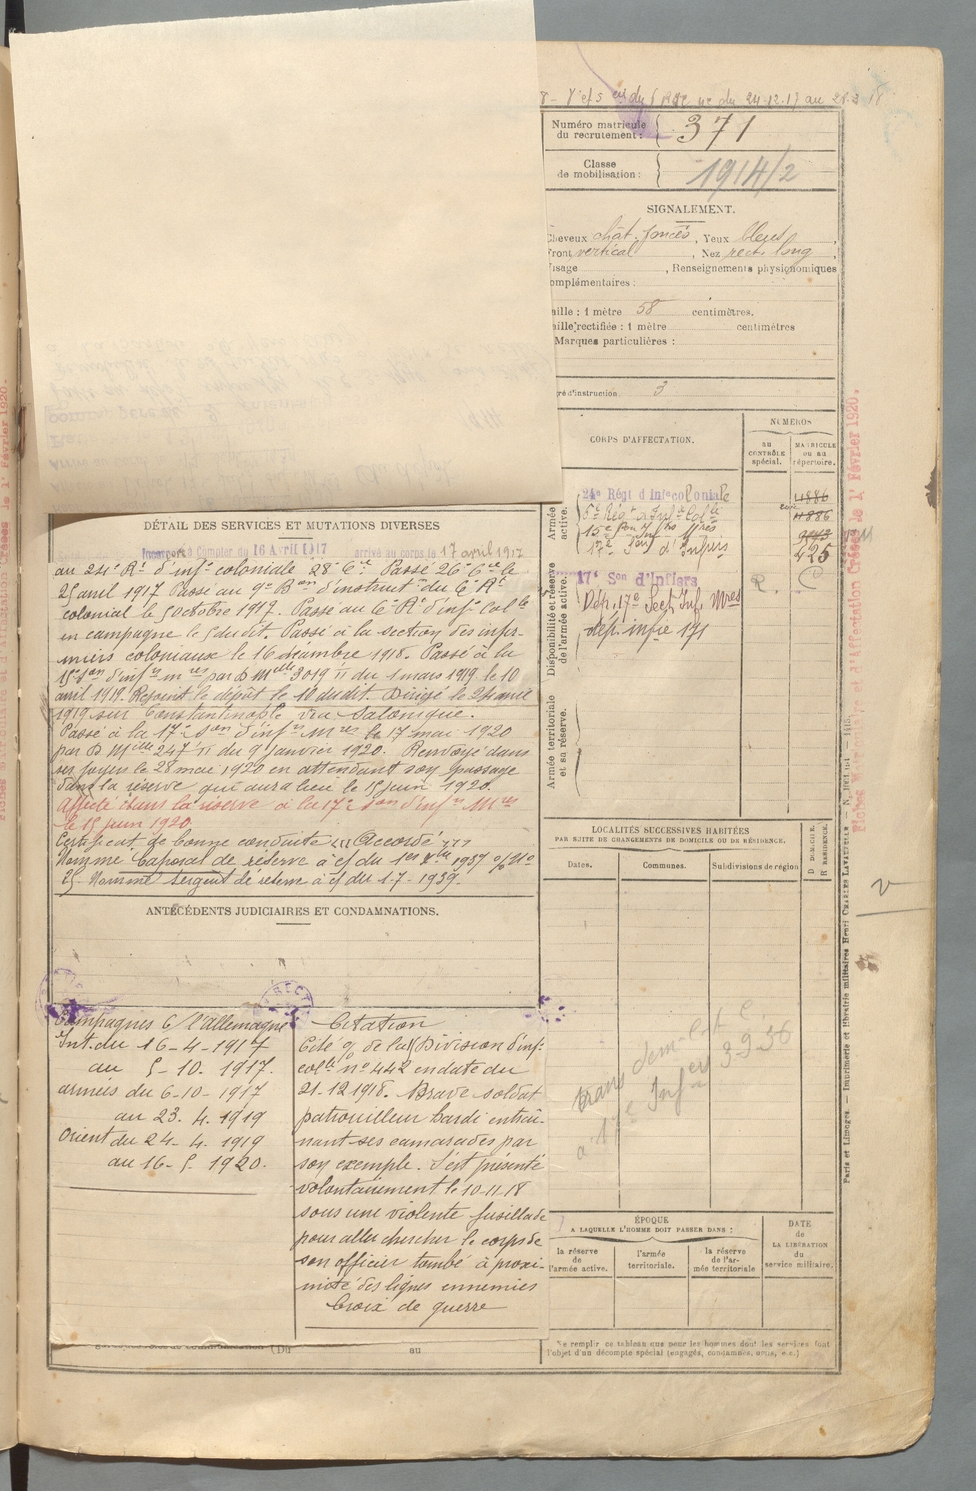 Numéro matricule du recrutement : 371
Classe de mobilisation : 1914/2
SIGNALEMENT.
Cheveux chât. foncés, Yeux bleus,
Front vertical, Nez rect. long,
Visage , Renseignements physionomiques
complémentaires :
Taille : 1 mètre 58 centimètres.
Taille rectifiée : 1 mètre centimètres
Marques particulières :
d'instruction 3
CORPS D'AFFECTATION.
NUMÉROS
au CONTRÔLE spécial.
MATRICULE ou au répertoire.
Armée active.
24e Régt d'Infie coloniale
17e Son d'Infirs
425
Disponibilité et réserve de l'armée active.
17e Son d'Infiers
Dép. 17e Sect. Inf. Mres
Armée territoriale et sa réserve.
DÉTAIL DES SERVICES ET MUTATIONS DIVERSES
Incorporé à Compter du 16 Avril 1917 arrivé au corps le 17 avril 1917
au 24e Rt d'infie coloniale 28e Cie. Passé 26e Cie le
25 avril 1917 Passé au 9e Bon d'instruct du 6e Rt
colonial le 5 octobre 1917. Passé au 6e Rt d'infie Colle
en campagne le 5 dudit. Passé à la section des infir-
miers coloniaux le 16 décembre 1918. Passé à la
15e Son d'infrs mres par D Mlle 3019 II du 1 mars 1919 le 10
avril 1919. Rejoint le dépôt le 10 dudit. Dirigé le 24 avril
1919 sur Constantinople via Salonique.
Passé à la 17e Son d'infrs Mres le 17 mai 1920
par D Mlle 247 II du 9 janvier 1920. Renvoyé dans
ses foyers le 28 mai 1920 en attendant son passage
dans la réserve qui aura lieu le 15 juin 1920.
Affecté dans la réserve à la 17e Son d'infrs Mres
le 15 juin 1920.
Certificat de bonne conduite "Accordé"
Nommé Caporal de réserve à c/ du 1er Xbre 1937
25. Nommé sergent de réserve à c/ du 1-7-1939.
ANTÉCÉDENTS JUDICIAIRES ET CONDAMNATIONS.
Campagnes C/ l'Allemagne
Int. du 16-4-1917
au 5-10. 1917.
armées du 6-10-1917
au 23. 4. 1919
Orient du 24-4. 1919
au 16-5. 1920.
Citation
Cité de la Division d'infie
colle n° 442 en date du
21-12 1918. Brave soldat
patrouilleur hardi entraî-
nant ses camarades par
son exemple. S'est présenté
volontairement le 10-11-18
sous une violente fusillade
pour aller chercher le corps de
son officier tombé à proxi-
mité des lignes ennemies
Croix de guerre
LOCALITÉS SUCCESSIVES HABITÉES
PAR SUITE DE CHANGEMENTS DE DOMICILE OU DE RÉSIDENCE.
Dates.
Communes.
Subdivisions de région
D DOMICILE.
R RÉSIDENCE.
ÉPOQUE
A LAQUELLE L'HOMME DOIT PASSER DANS :
la réserve de l'armée active.
l'armée territoriale.
la réserve de l'armée territoriale
DATE DE LA LIBÉRATION du service militaire.
Ne remplir ce tableau que pour les hommes dont les services font
l'objet d'un décompte spécial (engagés, condamnés, omis, etc.)
(Du au
Paris et Limoges. — Imprimerie et librairie militaires Henri CHARLES-LAVAUZELLE